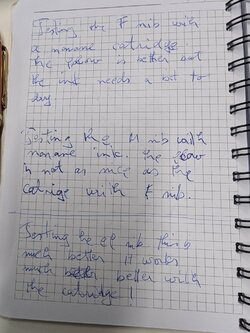 Testing the F nib with
a noname catridge
the flow is better but
the ink needs a bit to
dry
Testing the M nib with
noname ink. the flow
is not as nice as the
catrige with F nib.
Testing the EF nib this is
much better it works
much better better with
the catridge!